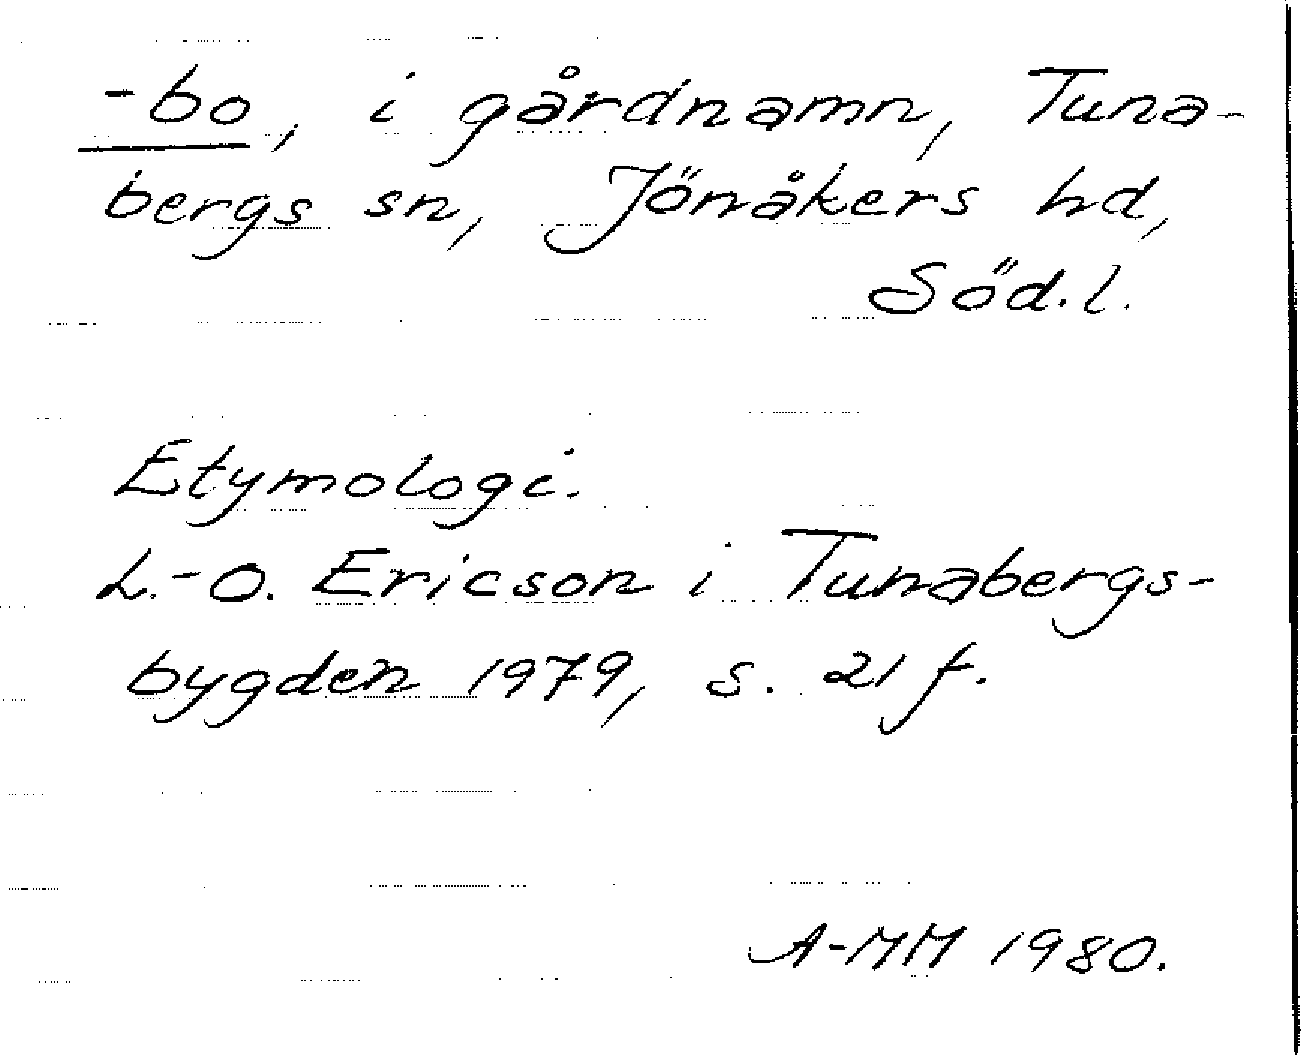 -bo, i gårdnamn, Tuna-
bergs sn, Jönåkers hd,
Söd.l.
Etymologi.
L.-O. Ericson i Tunabergs-
bygden 1979, s. 21 f.
A-MM 1980.